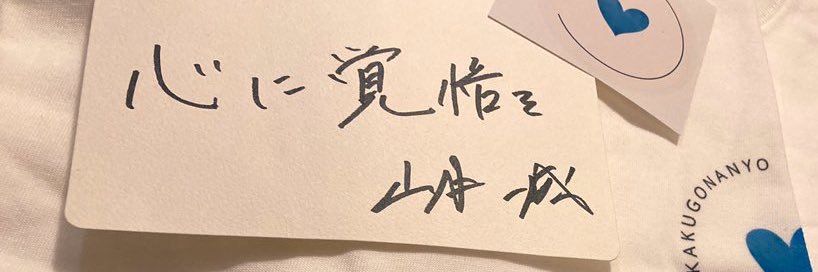 心に覚悟を
KAKUGONANYO